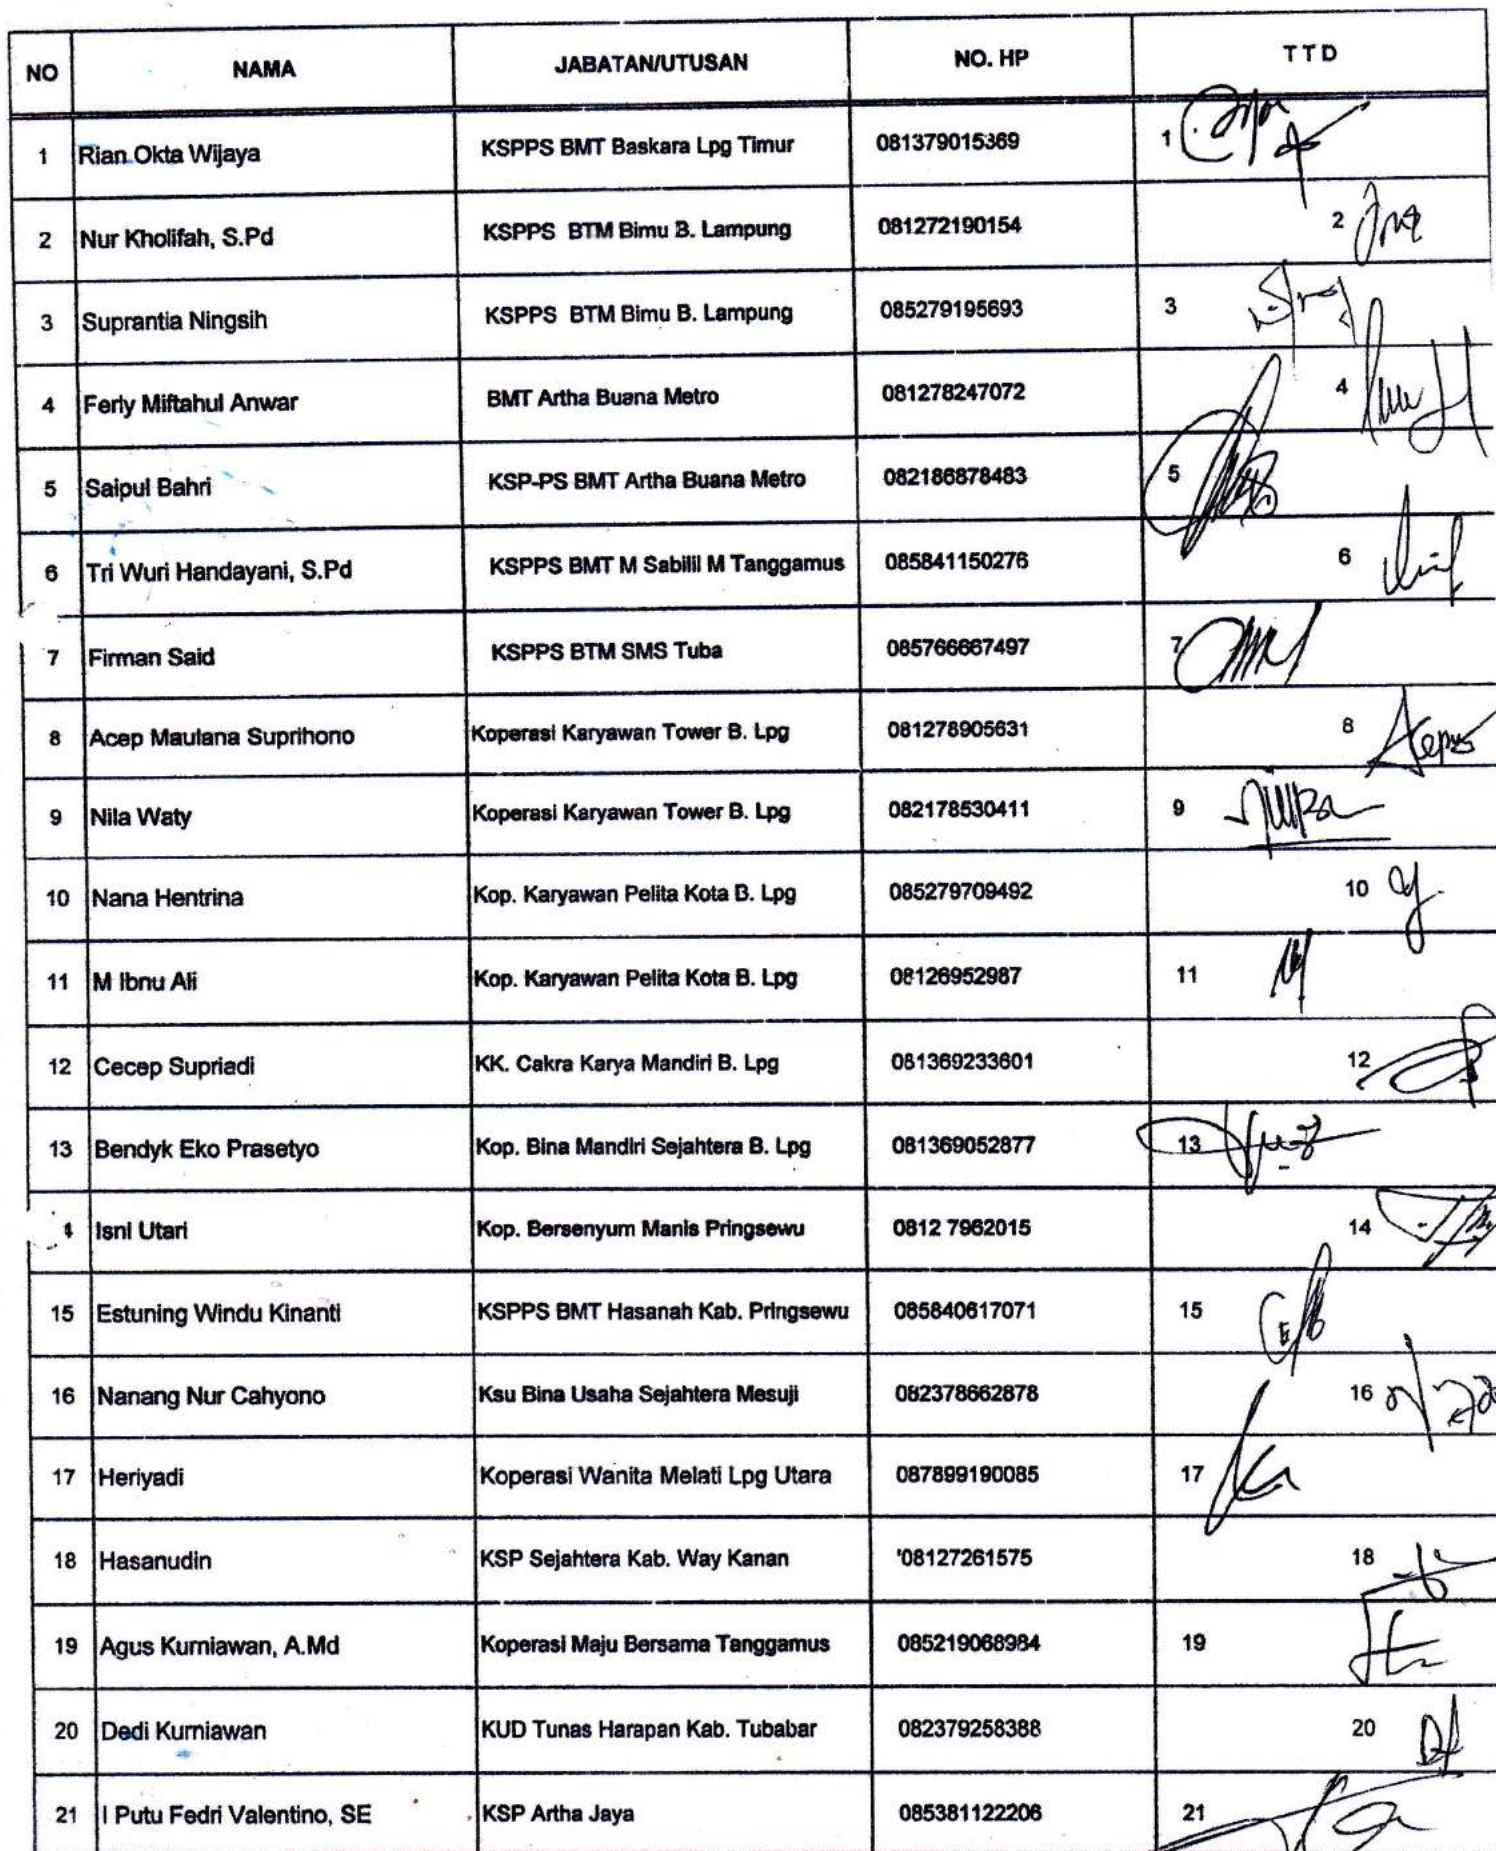 NO NAMA JABATAN/UTUSAN NO. HP TTD
1 Rian Okta Wijaya KSPPS BMT Baskara Lpg Timur 081379015369 1
2 Nur Kholifah, S.Pd KSPPS BTM Bimu B. Lampung 081272190154 2
3 Suprantia Ningsih KSPPS BTM Bimu B. Lampung 085279195693 3
4 Ferly Miftahul Anwar BMT Artha Buana Metro 081278247072 4
5 Saipul Bahri KSP-PS BMT Artha Buana Metro 082186878483 5
6 Tri Wuri Handayani, S.Pd KSPPS BMT M Sabilil M Tanggamus 085841150276 6
7 Firman Said KSPPS BTM SMS Tuba 085766667497 7
8 Acep Maulana Suprihono Koperasi Karyawan Tower B. Lpg 081278905631 8
9 Nila Waty Koperasi Karyawan Tower B. Lpg 082178530411 9
10 Nana Hentrina Kop. Karyawan Pelita Kota B. Lpg 085279709492 10
11 M Ibnu Ali Kop. Karyawan Pelita Kota B. Lpg 08126952987 11
12 Cecep Supriadi KK. Cakra Karya Mandiri B. Lpg 081369233601 12
13 Bendyk Eko Prasetyo Kop. Bina Mandiri Sejahtera B. Lpg 081369052877 13
4 Isni Utari Kop. Bersenyum Manis Pringsewu 0812 7962015 14
15 Estuning Windu Kinanti KSPPS BMT Hasanah Kab. Pringsewu 085840617071 15
16 Nanang Nur Cahyono Ksu Bina Usaha Sejahtera Mesuji 082378662878 16
17 Heriyadi Koperasi Wanita Melati Lpg Utara 087899190085 17
18 Hasanudin KSP Sejahtera Kab. Way Kanan '08127261575 18
19 Agus Kurniawan, A.Md Koperasi Maju Bersama Tanggamus 085219068984 19
20 Dedi Kurniawan KUD Tunas Harapan Kab. Tubabar 082379258388 20
21 I Putu Fedri Valentino, SE KSP Artha Jaya 085381122206 21